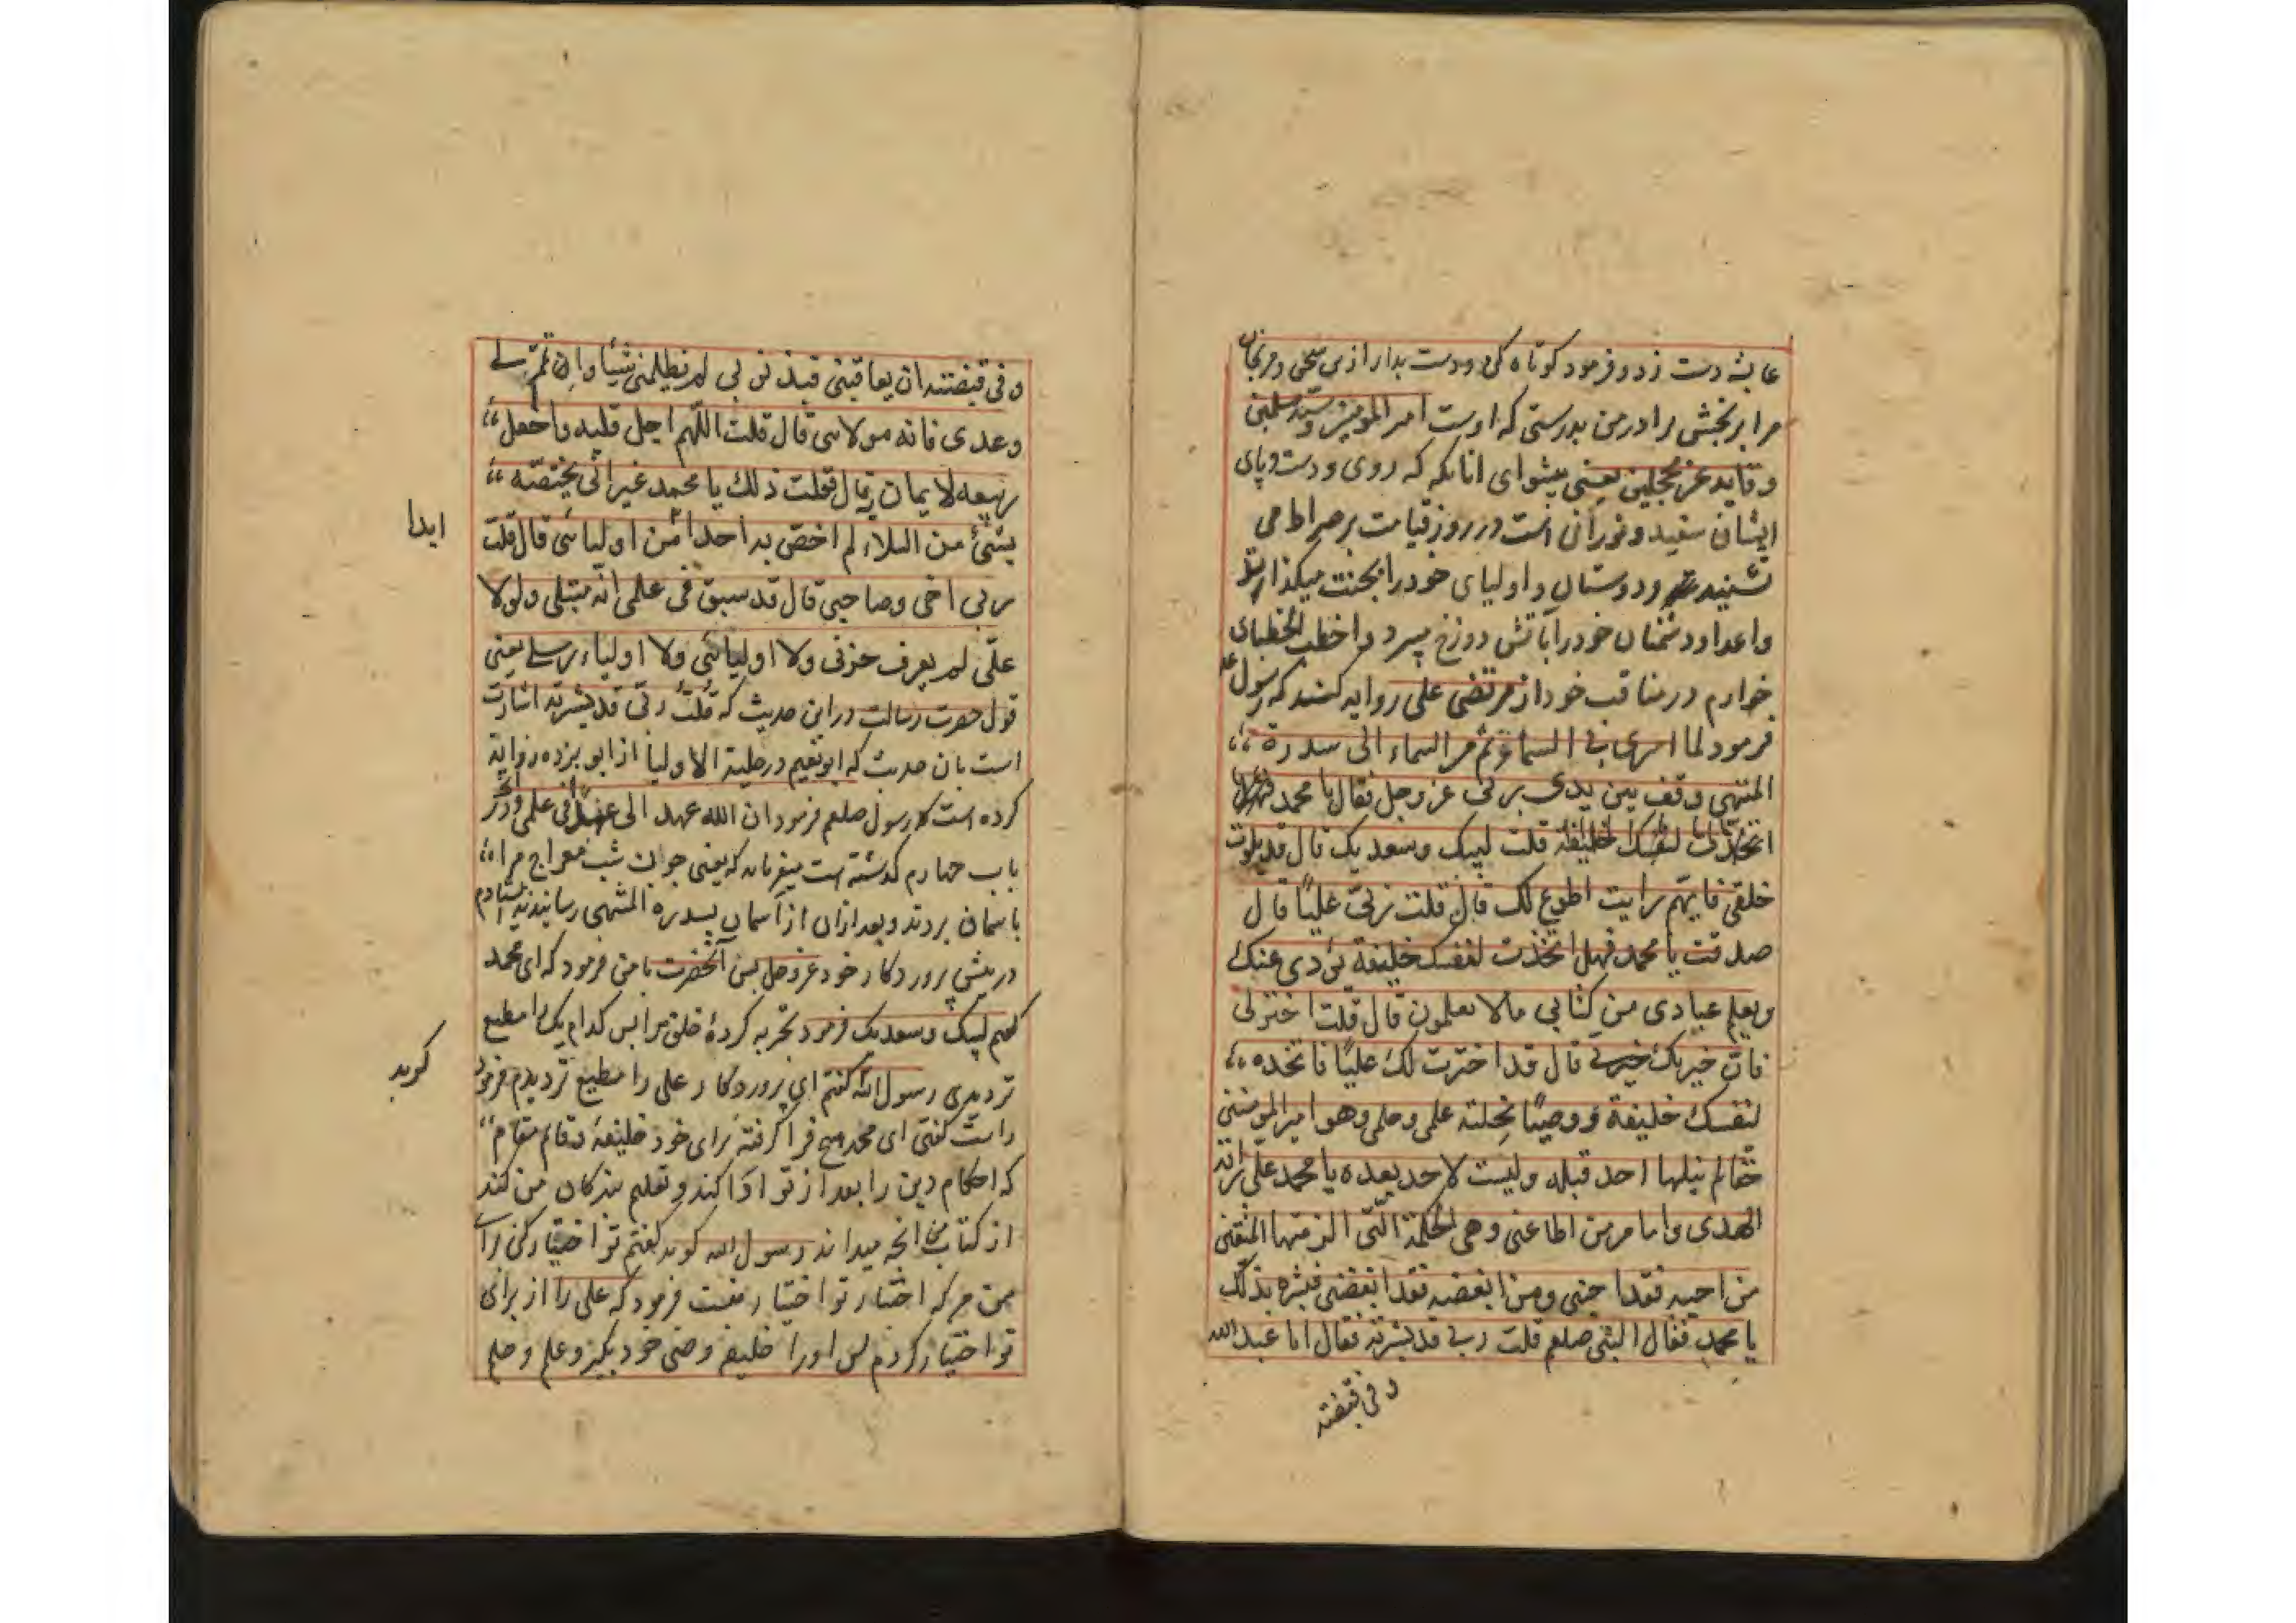 عایشه دست زد و فرمود کوتاه کن و دست بدار ازین سخن و مرنجان
مرا بر نجش برادر من بدرستی که اوست امیر المومنین و سید مسلمین
و قاید غر محجلین یعنی پیشوای انانکه که روی و دست و پای
ایشان سفید و نورانی است در روز قیامت بر صراط می
نشیند و دوستان و اولیای خود را بجنت میگذارند
و اعدا و دشمنان خود را بآتش دوزخ میبرد و اخطب الخطبای
خوارم در مناقب خود از مرتضی علی روایه کند که رسول
فرمود لما اسری بی الی السماء ثم من السماء الی سدرة
المنتهی وقف بین یدی ربی عز وجل فقال یا محمد
اتخذت لنفسک خلیفة قلت لبیک وسعدیک قال قد بلوت
خلقی فایهم رایت اطوع لک قال قلت ربی علیًا قال
صدقت یا محمد فهل اتخذت لنفسک خلیفة یؤدی عنک
ویعلم عبادی من کتابی مالا یعلمون قال قلت اختر لی
فان خیرتک خیرتی قال قد اخترت لک علیًا فاتخذه
لنفسک خلیفة و وصیًا نحلته علمی وحلمی وهو امیر المومنین
حقا لم ینلها احد قبله ولیست لاحد بعده یا محمد علی رایة
الهدی وامام من اطاعنی وهی الکلمة التی الزمتها المتقین
من احبه فقد احبنی ومن ابغضه فقد ابغضنی فبشره بذلک
یا محمد فقال النبی صلعم قلت ربی قد بشرته فقال انا عبد الله
و فی قبضته
و فی قبضته ان یعاقبنی فبذنوبی لم یظلمنی شیًا وان تمم لی
وعدی فانه مولای قال قلت اللهم اجل قلبه واجعل
ربیعه الایمان به قال فعلت ذلک یا محمد غیر انی مختصه
بشیء من البلاء لم اخص به احدا من اولیائی قال قلت
ابدا
ربی اخی وصاحبی قال قد سبق فی علمی انه مبتلی ولولا
علی لم یعرف حزبی ولا اولیائی ولا اولیاء رسلی یعنی
قول حضرت رسالت در این حدیث که قلت ربی قد بشرته اشارت
است بان حدیث که ابو نعیم در حلیة الاولیا از ابو برزه روایة
کرده است که رسول صلعم فرمود ان الله عهد الی عهدا فی علی و در
باب چهارم گذشته است میفرماید که یعنی چون شب معراج مرا
باسمان بردند و بعد ازان از آسمان بسدره المنتهی رسانیدند ایستادم
در پیش پروردکار خود عز وجل پس آنحضرت بامن فرمود که ای محمد
گفتم لبیک وسعدیک فرمود تجربه کردۀ خلق مرا پس کدام یک را مطیع
تر دیدی رسول الله گفتم ای پروردکار علی را مطیع تر دیدم فرمود
کوید
راست گفتی ای محمد هیچ فرا گرفتۀ برای خود خلیفۀ و قائم مقام
که احکام دین را بعد از تو ادا کند و تعلیم بندکان من کند
از کتاب من انچه میداند رسول الله کوید گفتم تو اختیار کن برای
من هر که اختیار تو اختیار منست فرمود که علی را از برای
تو اختیار کردم پس اورا خلیفه و وصی خود بگیر و علم و حلم